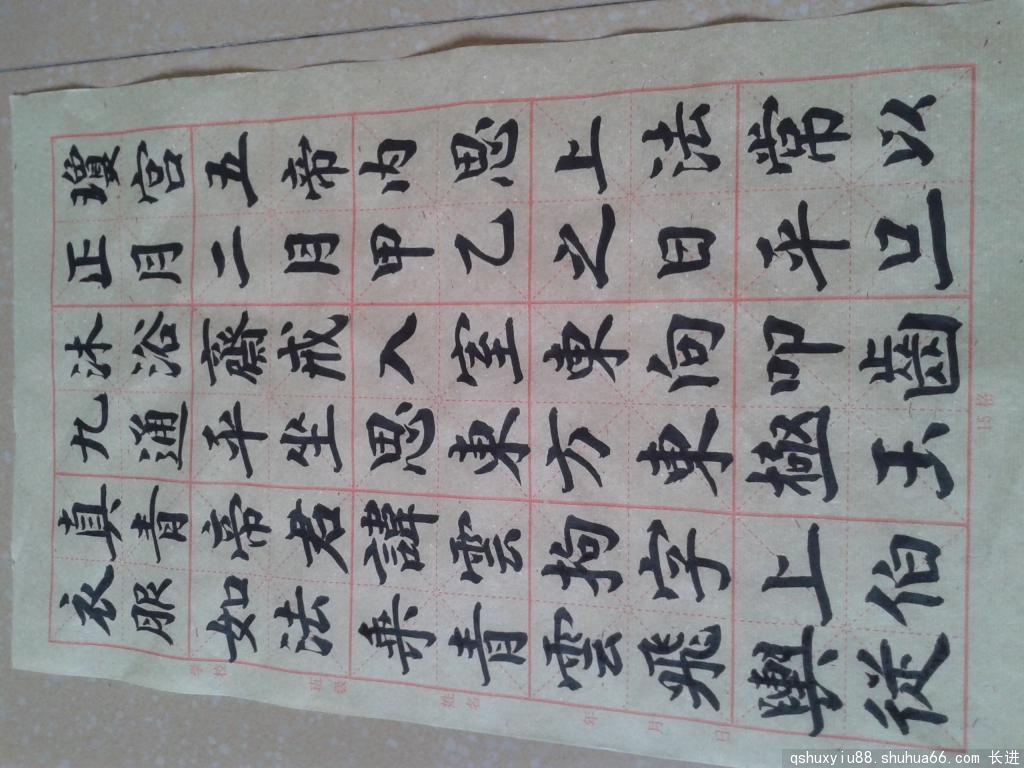 瓊宮五帝内思上法常以
正月二月甲乙之日平旦
沐浴齋戒入室東向叩齒
九通平坐思東方東極玉
真青帝君諱雲拘字上伯
衣服如法乗青雲飛輿從
15格
学校 班级 姓名 年 月 日
qshuxyiu88.shuhua66.com 长进